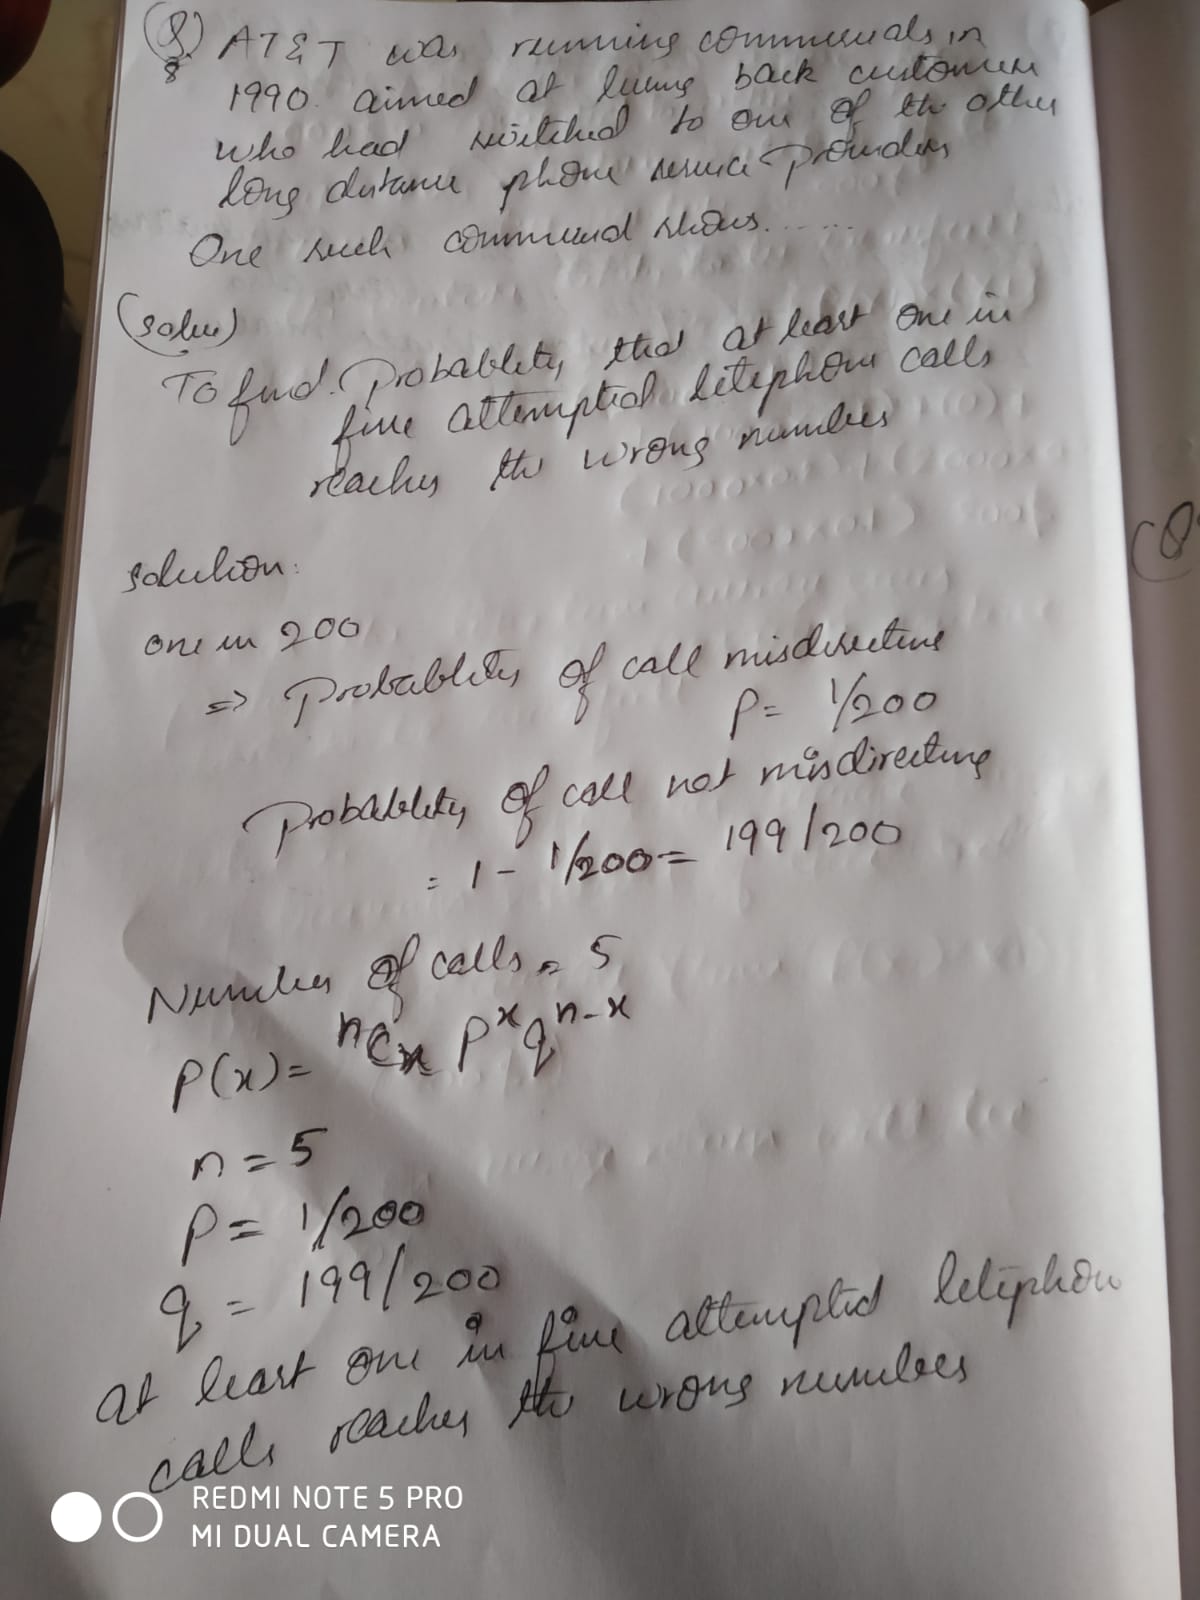 (Q.) AT&T was running commercials in
8
1990 aimed at luring back customers
who had switched to one of the other
long distance phone service providers
One such commercial shows......
(solu)
To find. Probability that at least one in
five attempted telephone calls
reaches the wrong number
solution:
one in 200
=> Probability of call misdirecting
P = 1/200
Probability of call not misdirecting
= 1 - 1/200 = 199/200
Number of calls = 5
P(x) = nCx P^x q^n-x
n = 5
P = 1/200
q = 199/200
at least one in five attempted telephon
calls reaches the wrong number
(Q
REDMI NOTE 5 PRO
MI DUAL CAMERA